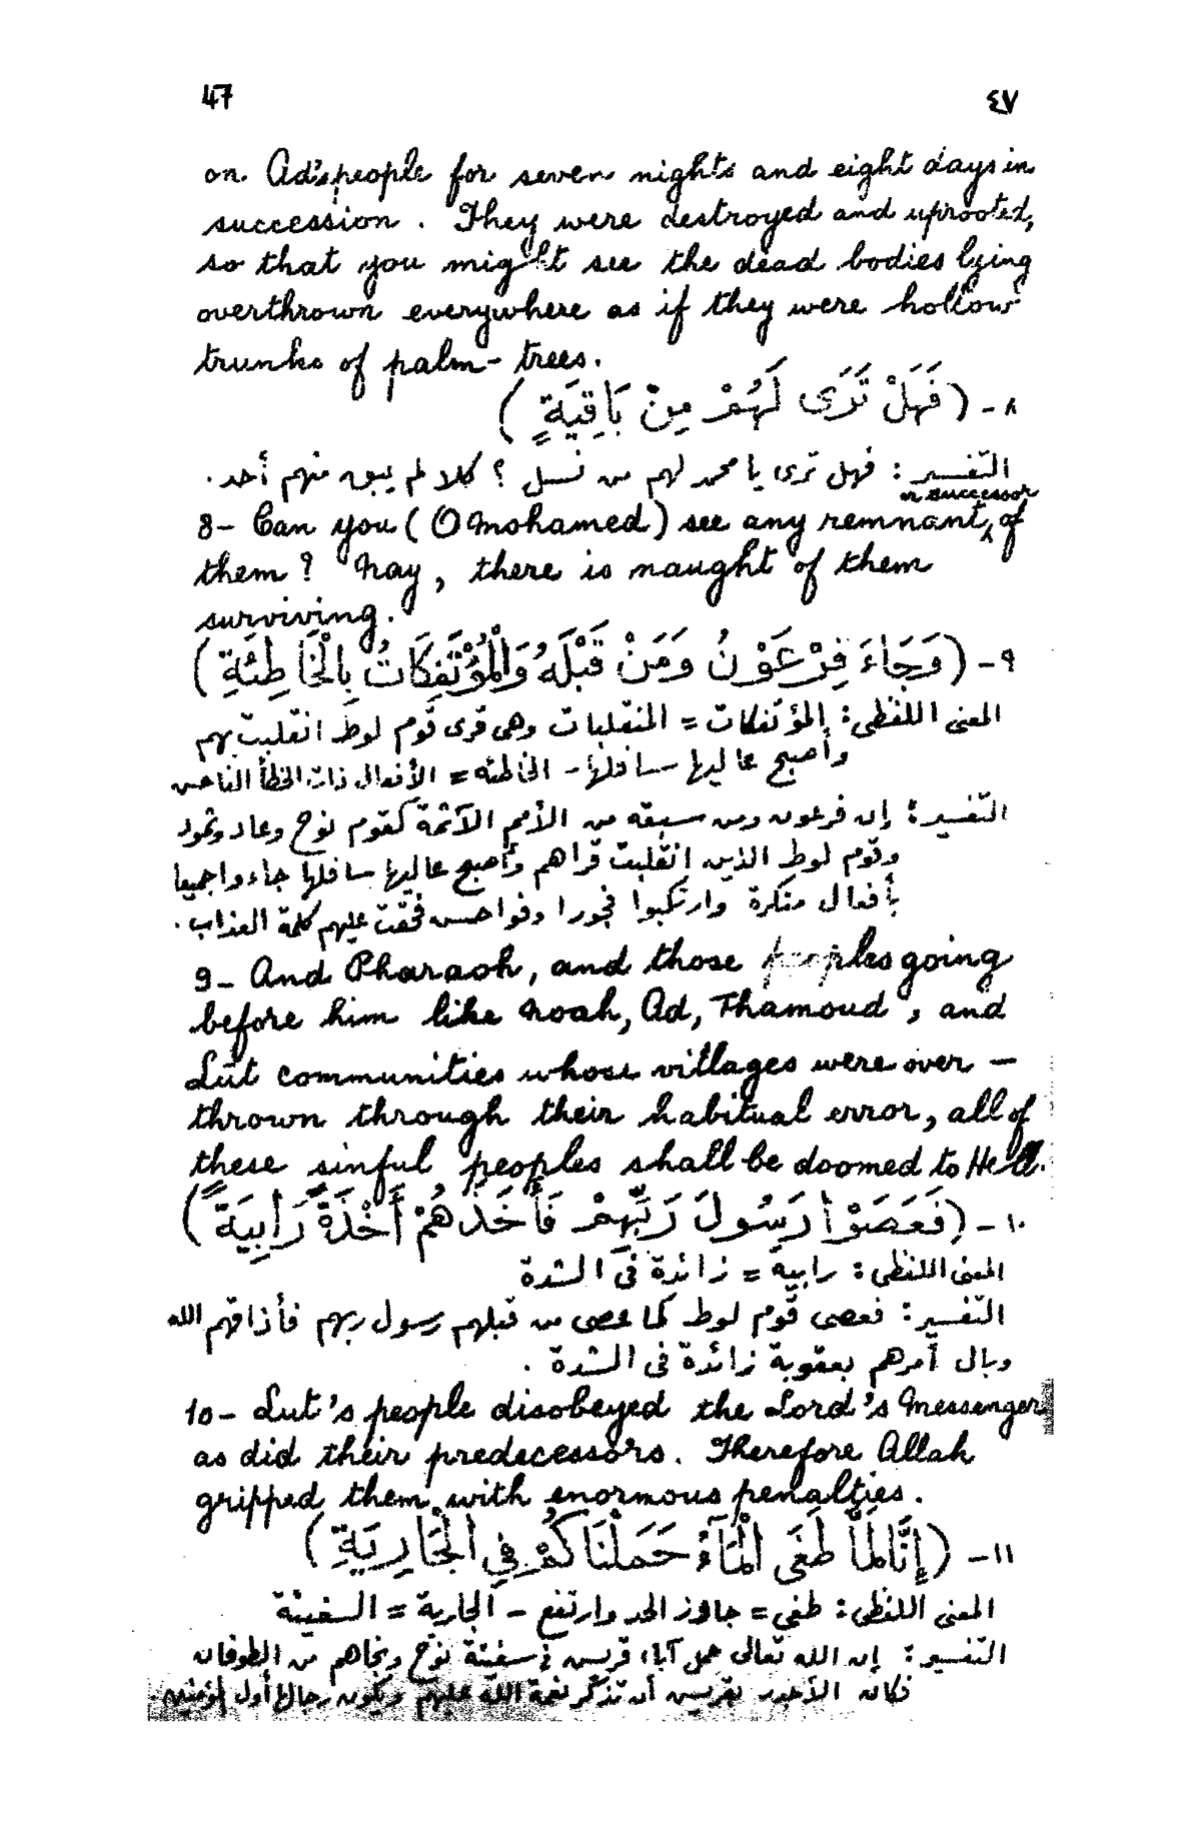 47 ٤٧
on Ad's people for seven nights and eight days in
succession. They were destroyed and uprooted,
so that you might see the dead bodies lying
overthrown everywhere as if they were hollow
trunks of palm-trees.
٨- (فَهَلْ تَرَى لَهُمْ مِنْ بَاقِيَةٍ)
التفسير: فهل ترى يا محمد لهم من نسل؟ كلا لم يبق منهم أحد.
or successor
8- Can you (O Mohamed) see any remnant, of
them? Nay, there is naught of them
surviving.
٩- (وَجَاءَ فِرْعَوْنُ وَمَنْ قَبْلَهُ وَالْمُؤْتَفِكَاتُ بِالْخَاطِئَةِ)
المعنى اللفظى: المؤتفكات = المنقلبات وهى قرى قوم لوط انقلبت بهم
وأصبح عاليها سافلها - الخاطئه = الأفعال ذات الخطأ الفاحش
التفسير: إن فرعون ومن سبقه من الأمم الآثمة كقوم نوح وعاد وثمود
وقوم لوط الذين انقلبت قراهم وأصبح عاليها سافلها جاءوا جميعا
بأفعال منكرة وارتكبوا فجورا وفواحش فحقت عليهم كلمة العذاب.
9- And Pharaoh, and those peoples going
before him like Noah, Ad, Thamoud, and
Lut communities whose villages were over-
thrown through their habitual error, all of
these sinful peoples shall be doomed to Hell.
١٠- (فَعَصَوْا رَسُولَ رَبِّهِمْ فَأَخَذَهُمْ أَخْذَةً رَابِيَةً)
المعنى اللفظى: رابية = زائدة فى الشدة
التفسير: فعصى قوم لوط كما عصى من قبلهم رسول ربهم فأذاقهم الله
وبال أمرهم بعقوبة زائدة فى الشدة.
10- Lut's people disobeyed the Lord's Messenger
as did their predecessors. Therefore Allah
gripped them with enormous penalties.
١١- (إِنَّا لَمَّا طَغَى الْمَآءُ حَمَلْنَاكُمْ فِي الْجَارِيَةِ)
المعنى اللفظى: طغى = جاوز الحد وارتفع - الجارية = السفينة
التفسير: إن الله تعالى حمل آباء قريش فى سفينة نوح ونجاهم من الطوفان
فكان الأجدر بقريش أن تذكر نعمة الله عليهم ويكون رجالها أول المؤمنين.